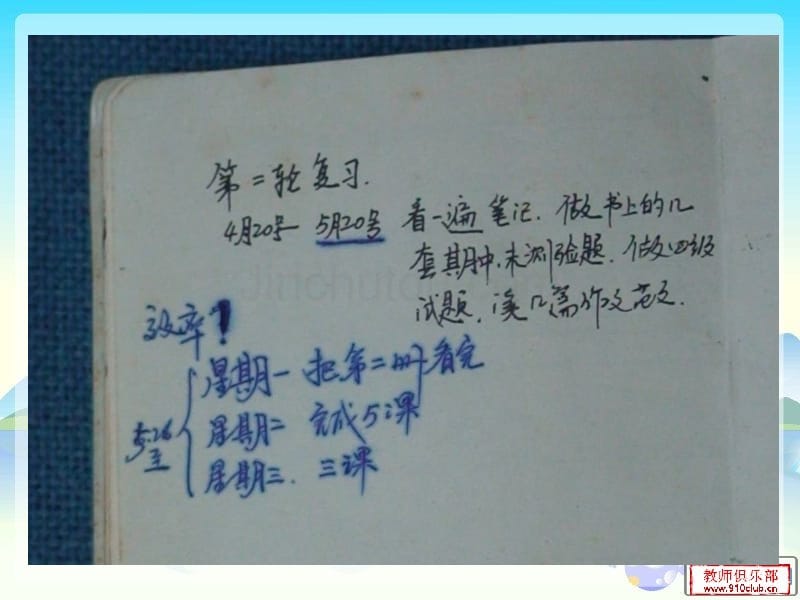 第二轮复习.
4月20号—5月20号 看一遍笔记. 做书上的几
套期中.末测验题. 做四级
试题. 读几篇作文范文.
效率!
星期一 把第二册看完
5.26 星期二 完成5课
至
星期三. 三课
Jinchuto
教师俱乐部
www.910club.cn